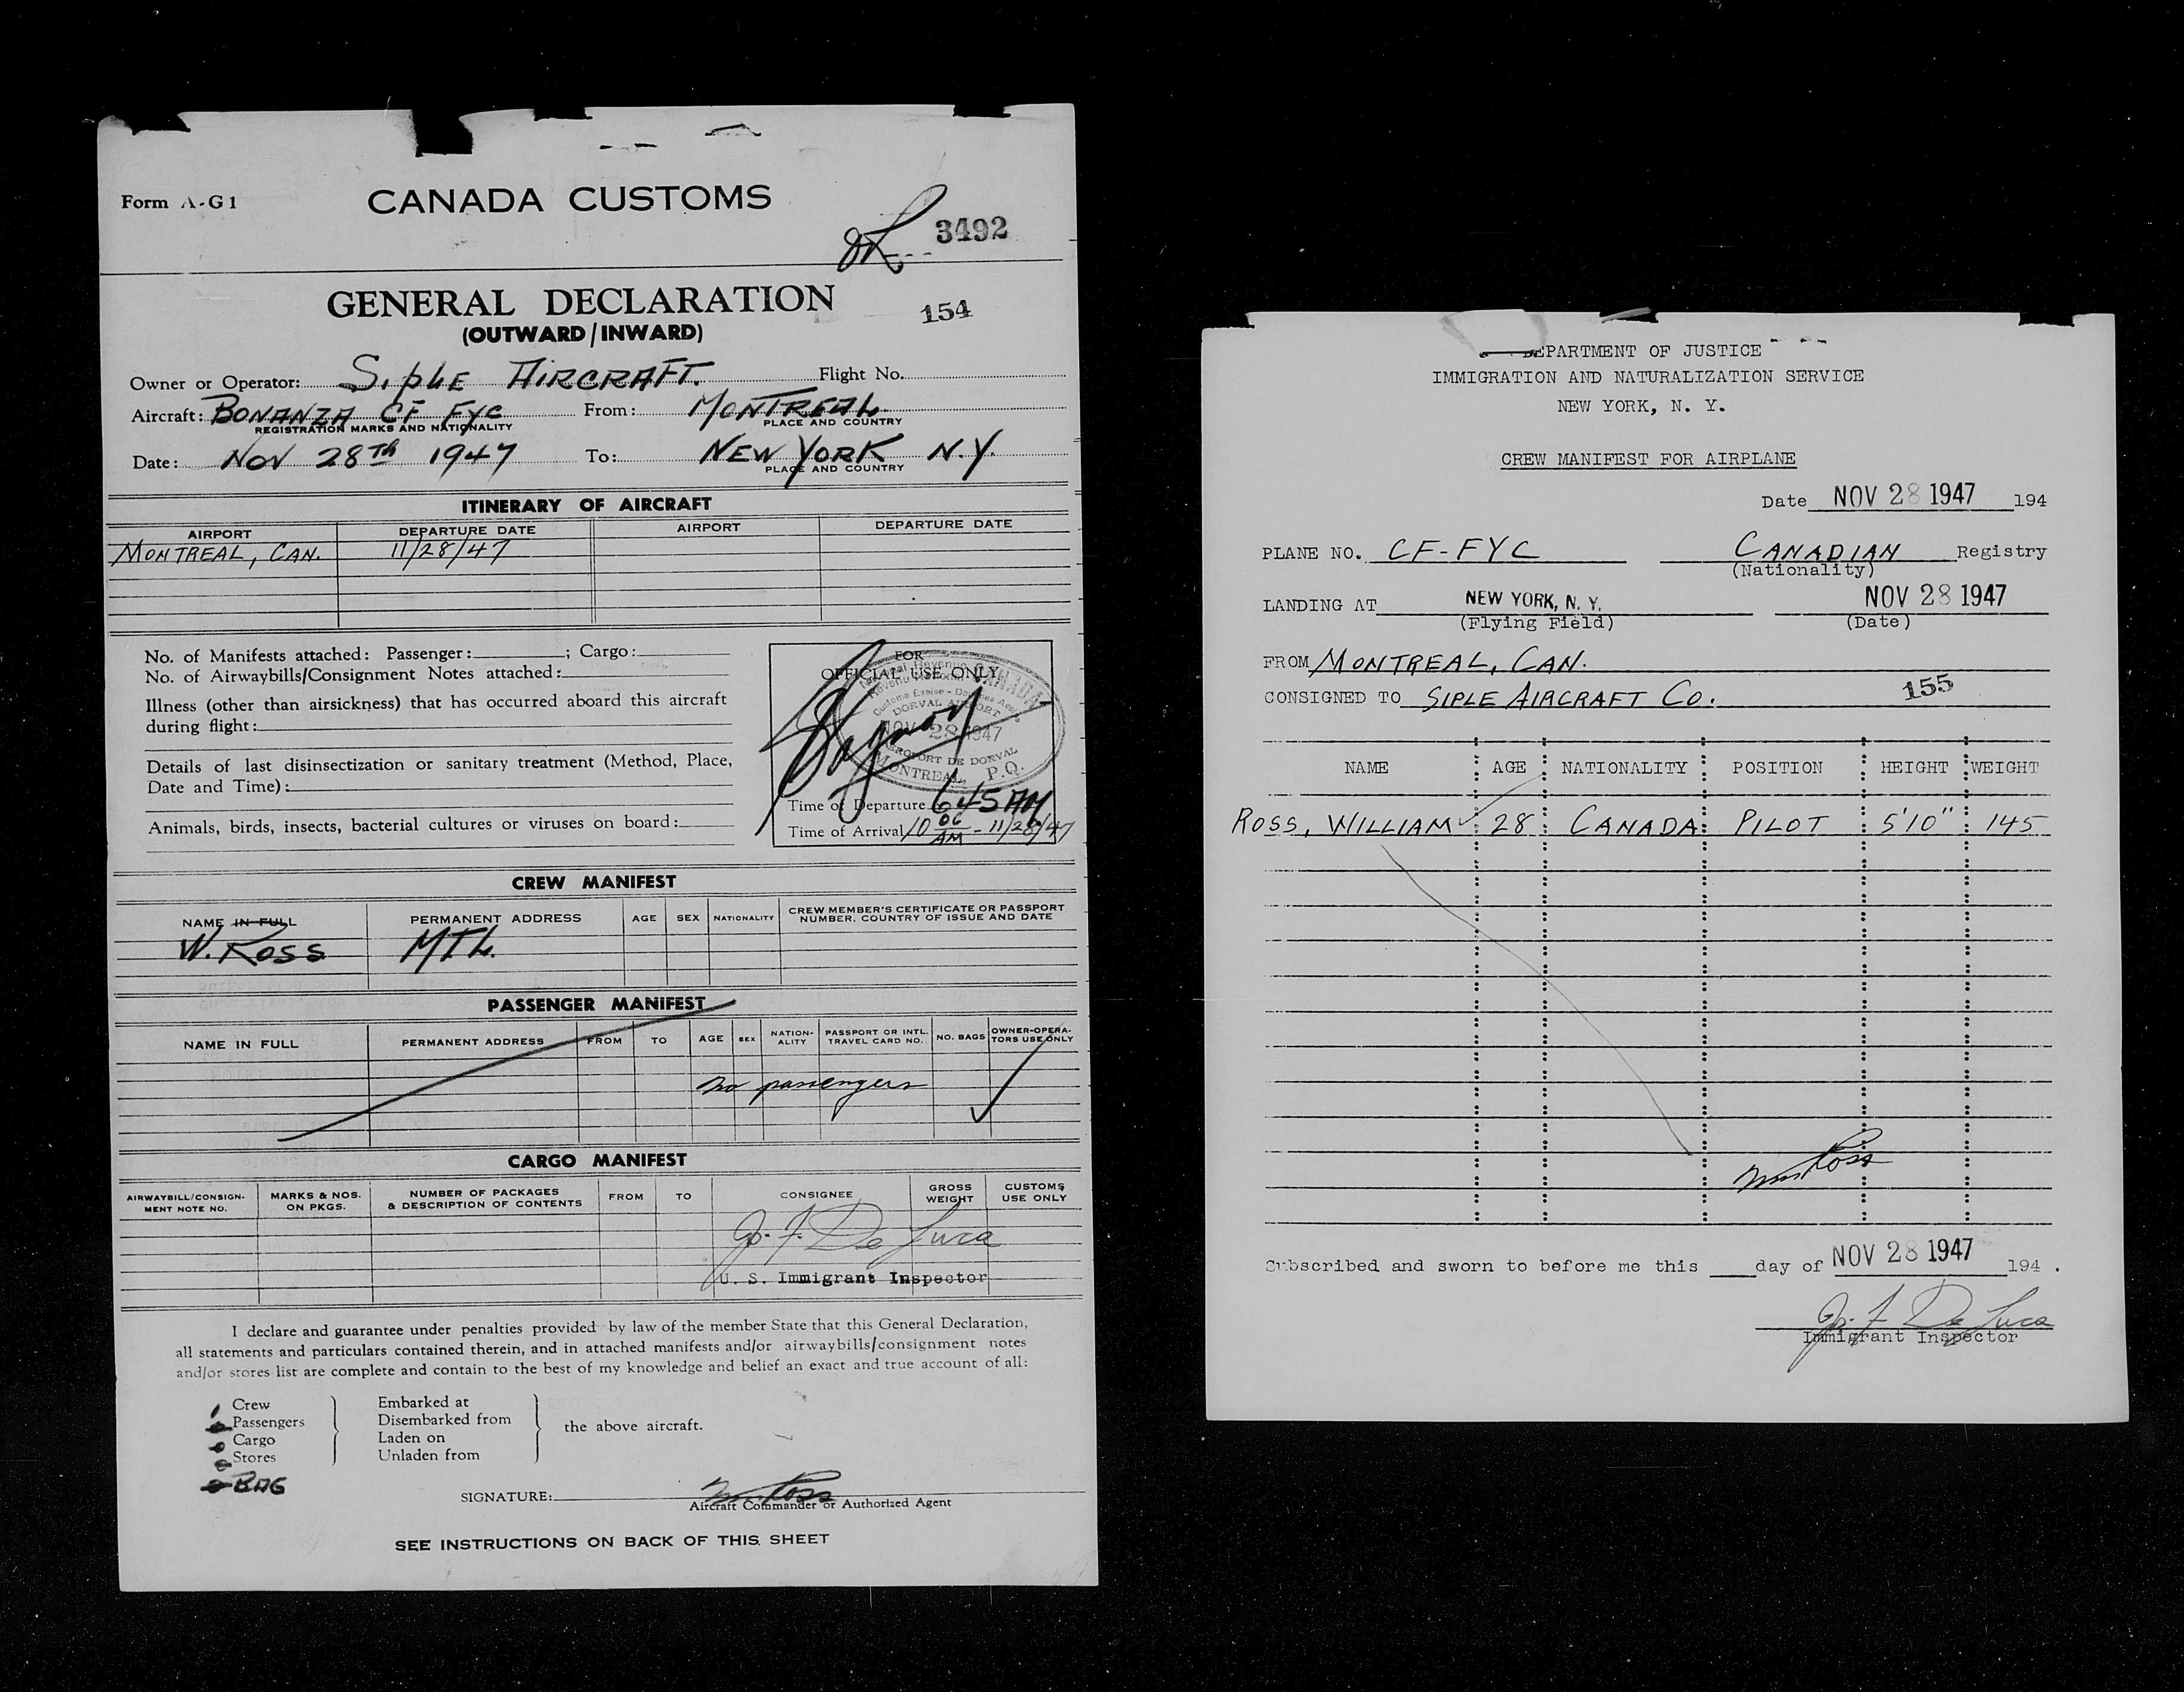 Form A-G1
CANADA CUSTOMS
OK 3492
GENERAL DECLARATION
154
(OUTWARD/INWARD)
Owner or Operator: SIPLE AIRCRAFT. Flight No.
Aircraft: BONANZA CF FYC From: MONTREAL
REGISTRATION MARKS AND NATIONALITY PLACE AND COUNTRY
Date: NOV 28TH 1947 To: NEW YORK N.Y.
PLACE AND COUNTRY
ITINERARY OF AIRCRAFT
AIRPORT DEPARTURE DATE AIRPORT DEPARTURE DATE
MONTREAL, CAN. 11/28/47
No. of Manifests attached: Passenger: ; Cargo:
No. of Airwaybills/Consignment Notes attached:
Illness (other than airsickness) that has occurred aboard this aircraft
during flight:
Details of last disinsectization or sanitary treatment (Method, Place,
Date and Time):
Animals, birds, insects, bacterial cultures or viruses on board:
FOR
OFFICIAL USE ONLY
CANADA
Customs Excise
DORVAL AIRPORT
NOV 28 1947
AEROPORT DE DORVAL
MONTREAL, P.Q.
Time of Departure 645 AM
Time of Arrival 10 06 AM - 11/28/47
CREW MANIFEST
NAME IN FULL PERMANENT ADDRESS AGE SEX NATIONALITY CREW MEMBER'S CERTIFICATE OR PASSPORT
NUMBER, COUNTRY OF ISSUE AND DATE
W. ROSS MTL.
PASSENGER MANIFEST
NAME IN FULL PERMANENT ADDRESS FROM TO AGE SEX NATION-
ALITY PASSPORT OR INTL.
TRAVEL CARD NO. NO. BAGS OWNER-OPERA-
TORS USE ONLY
No passengers
CARGO MANIFEST
AIRWAYBILL/CONSIGN-
MENT NOTE NO. MARKS & NOS.
ON PKGS. NUMBER OF PACKAGES
& DESCRIPTION OF CONTENTS FROM TO CONSIGNEE GROSS
WEIGHT CUSTOMS
USE ONLY
Jo. F. De Luca
U. S. Immigrant Inspector
I declare and guarantee under penalties provided by law of the member State that this General Declaration,
all statements and particulars contained therein, and in attached manifests and/or airwaybills/consignment notes
and/or stores list are complete and contain to the best of my knowledge and belief an exact and true account of all:
1 Crew Embarked at
Passengers Disembarked from
Cargo Laden on
Stores Unladen from
the above aircraft.
BAG
SIGNATURE: Wm Ross
Aircraft Commander or Authorized Agent
SEE INSTRUCTIONS ON BACK OF THIS SHEET
DEPARTMENT OF JUSTICE
IMMIGRATION AND NATURALIZATION SERVICE
NEW YORK, N. Y.
CREW MANIFEST FOR AIRPLANE
Date NOV 28 1947 194
PLANE NO. CF-FYC CANADIAN Registry
(Nationality)
LANDING AT NEW YORK, N. Y. NOV 28 1947
(Flying Field) (Date)
FROM MONTREAL, CAN.
CONSIGNED TO SIPLE AIRCRAFT CO. 155
NAME AGE NATIONALITY POSITION HEIGHT WEIGHT
ROSS, WILLIAM 28 CANADA PILOT 5'10" 145
Wm Ross
Subscribed and sworn to before me this day of NOV 28 1947 194 .
Jo. F De Luca
Immigrant Inspector